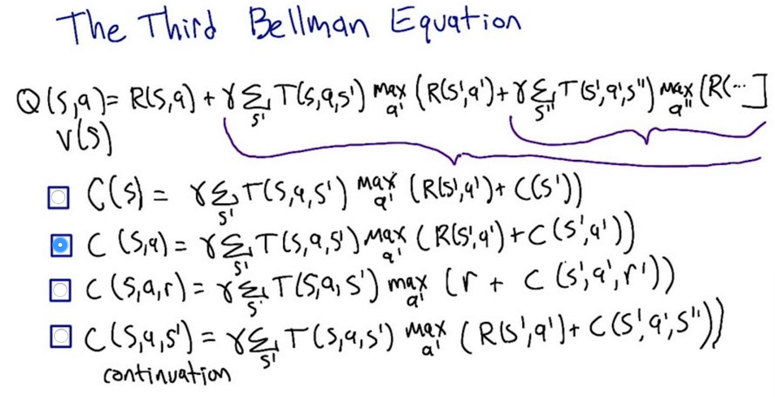 The Third Bellman Equation
Q(s,a)= R(s,a) + γ Σ_s' T(s,a,s') max_a' (R(s',a') + γ Σ_s'' T(s',a',s'') max_a'' (R(...]
V(s)
C(s) = γ Σ_s' T(s,a,s') max_a' (R(s',a') + C(s'))
C (s,a) = γ Σ_s' T(s,a,s') max_a' (R(s',a') + C(s',a'))
C (s,a,r) = γ Σ_s' T(s,a,s') max_a' (r + C (s',a',r'))
C(s,a,s') = γ Σ_s' T(s,a,s') max_a' (R(s',a') + C(s',a',s''))
continuation